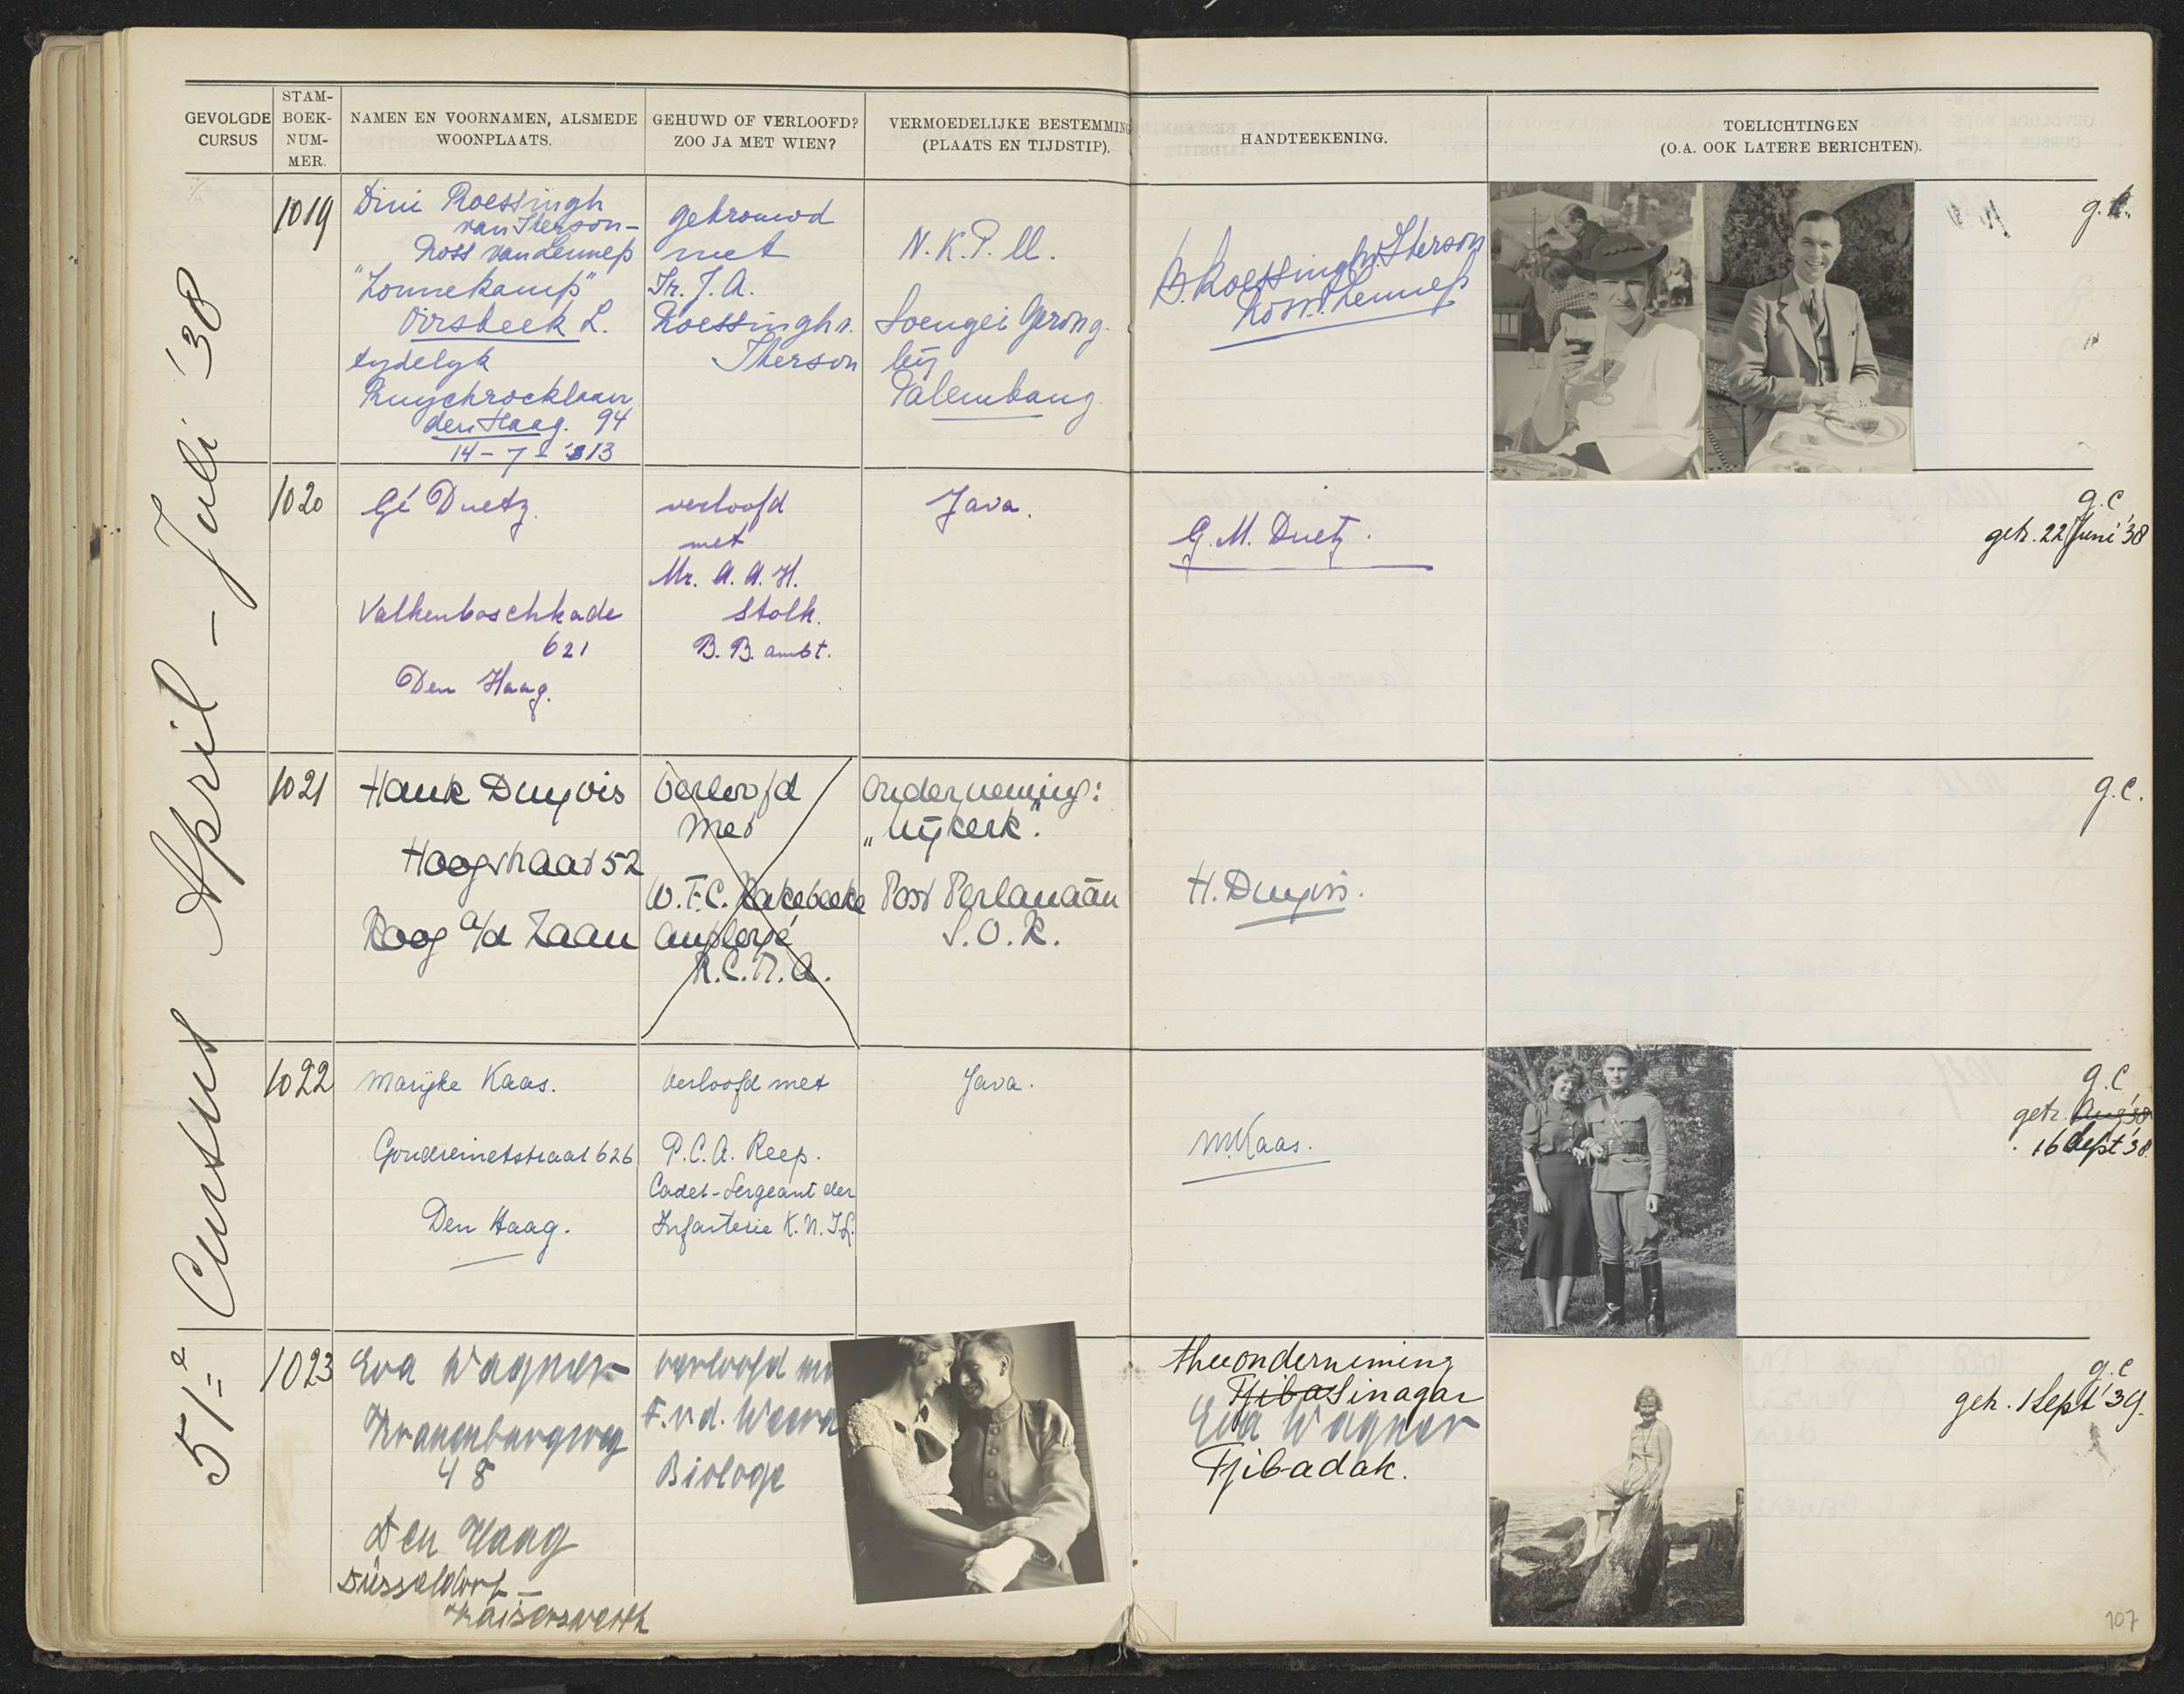 GEVOLGDE
CURSUS
STAM-
BOEK-
NUM-
MER.
NAMEN EN VOORNAMEN, ALSMEDE
WOONPLAATS.
GEHUWD OF VERLOOFD?
ZOO JA MET WIEN?
VERMOEDELIJKE BESTEMMING
(PLAATS EN TIJDSTIP).
HANDTEEKENING.
TOELICHTINGEN
(O.A. OOK LATERE BERICHTEN).
51e Cursus April - Juli '38
1019
Dini Roessingh
van Iterson-
Ross van Lennep
"Zonnekamp"
Oirsbeek L.
tydelyk
Ruychrocklaan
den Haag. 94
14-7-'13
getrouwd
met
Ir. J. A.
Roessingh v.
Iterson
N.K.P.M.
Soengei Gerong.
bij
Palembang
D. Roessingh v. Iterson
Ross v. Lennep
1020
Gé Duetz.
Valkenboschkade
621
Den Haag.
verloofd
met
Mr. A. A. H.
Stolk.
B.B. ambt.
Java.
G. M. Duetz.
g.c
getr. 22 Juni '38
1021
Hank Duyvis
Hoogstraat 52
Koog a/d Zaan
Verloofd
met
W.F.C.
employé
R.C.M.A.
Onderneming:
„Nijkerk".
Post Perlanaän
S.O.K.
H. Duyvis.
g.c.
1022
Marijke Kaas.
Goudreinetstraat 626
Den Haag.
Verloofd met
P.C.A. Reep.
Cadet-Sergeant der
Infanterie K.N.I.L.
Java.
M. Kaas.
g.c
getr. Aug '38
16 Sept '38
1023
Eva Wagner
Kranenburgweg
48
Den Haag
Düsseldorf-
Kaiserswerth
verloofd met
F. v.d. Weerd
Biologe
theeonderneming
Tjiba Sinagar
Eva Wagner
Tjibadak.
g.c
getr. 1 Sept '39.
107